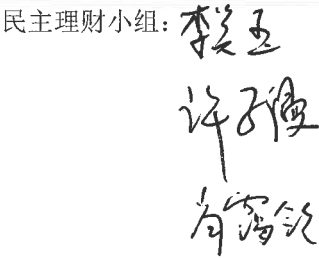 民主理财小组：李美玉
许子俊
肖富钦